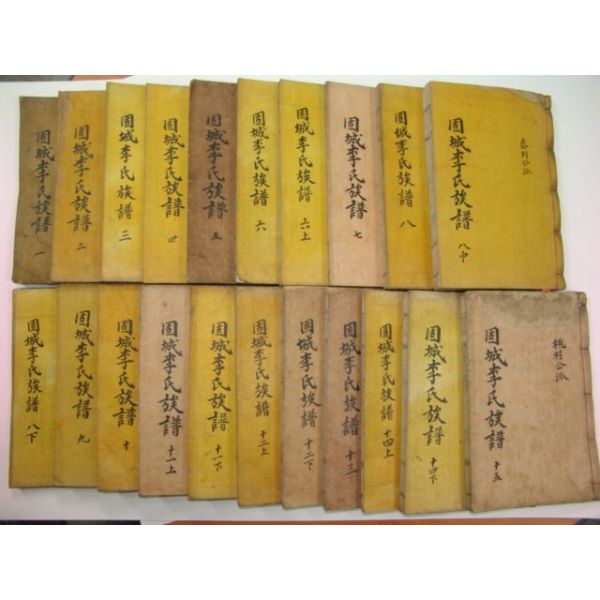 固城李氏族譜 一
固城李氏族譜 二
固城李氏族譜 三
固城李氏族譜 四
固城李氏族譜 五
固城李氏族譜 六
固城李氏族譜 六上
固城李氏族譜 七
固城李氏族譜 八
固城李氏族譜 八中
公派
固城李氏族譜 八下
固城李氏族譜 九
固城李氏族譜 十
固城李氏族譜 十一上
固城李氏族譜 十一下
固城李氏族譜 十二上
固城李氏族譜 十二下
固城李氏族譜 十三
固城李氏族譜 十四上
固城李氏族譜 十四下
固城李氏族譜 十五
桃村公派